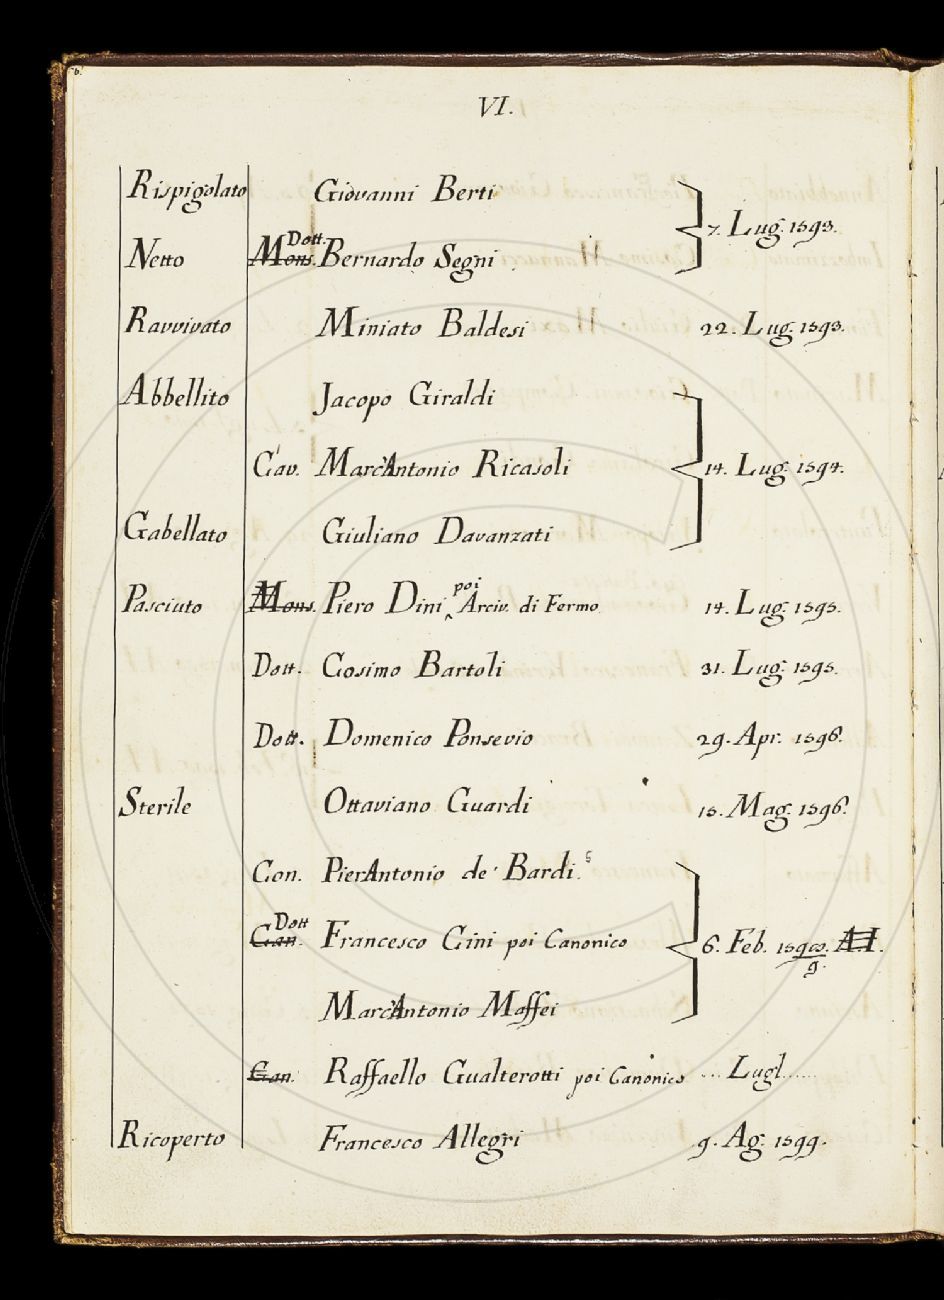 6.
VI.
Rispigolato Giovanni Berti
7. Lug. 1593.
Netto Mons. Dott. Bernardo Segni
Ravvivato Miniato Baldesi 22. Lug. 1593.
Abbellito Jacopo Giraldi
Cav. Marc'Antonio Ricasoli 14. Lug. 1594.
Gabellato Giuliano Davanzati
Pasciuto Mons. Piero Dini poi Arciv. di Fermo 14. Lug. 1595.
Dott. Cosimo Bartoli 31. Lug. 1595.
Dott. Domenico Ponsevio 29. Apr. 1596.
Sterile Ottaviano Guardi 15. Mag. 1596.
Con. PierAntonio de' Bardi
Can. Dott Francesco Gini poi Canonico 6. Feb. 159 9. A.I.
Marc'Antonio Maffei
Can. Raffaello Gualterotti poi Canonico ... Lugl......
Ricoperto Francesco Allegri 9. Ag. 1599.